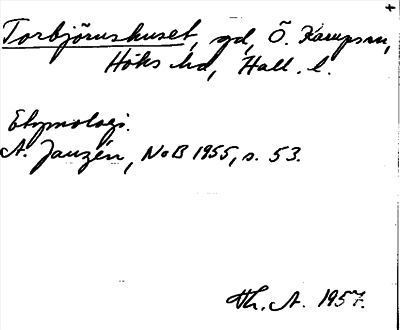 Torbjörnshuset, gd, Ö. Karups sn,
Höks hd, Hall. l.
Etymologi.
A. Janzén, NoB 1955, s. 53.
Th. A. 1957.